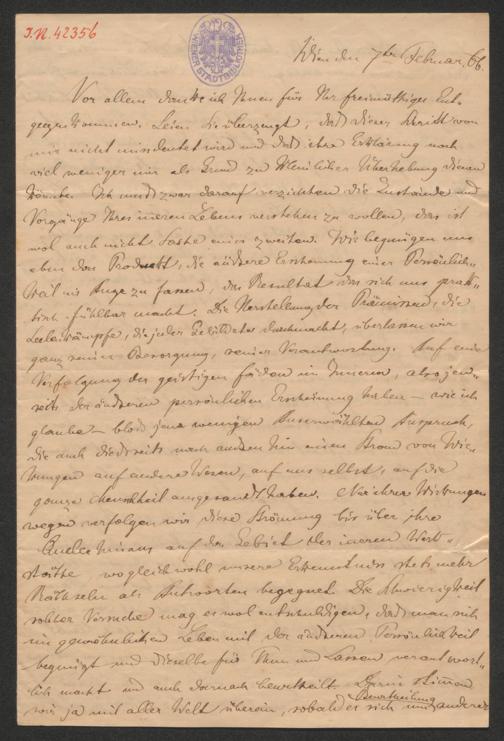 J.N. 42356
WIENER STADTBIBLIOTHEK
Wien den 7ten Februar. 66.
Vor allem danke ich Ihnen für Ihr freimüthiges Ent-
gegenkommen. Seien Sie überzeugt, daß dieser Schritt von
mir nicht missdeutet wird und daß ihre Erklärung noch
viel weniger mir als Grund zu kleinlicher Überhebung dienen
könnte. Ich muß zwar darauf verzichten die Zustände und
Vorgänge Ihres inneren Lebens verstehen zu wollen, das ist
wol auch nicht Sache eines zweiten. Wir begnügen uns
eben das Produkt, die äußere Erscheinung einer Persönlich-
keit ins Auge zu fassen, das Resultat das sich uns prak-
tisch fühlbar macht. Die Herstellung der Prämissen, die
Seelenkämpfe, die jeder Gebildete durchmacht, überlassen wir
ganz seiner Besorgung, seiner Verantwortung. Auf eine
Verfolgung der geistigen Fäden im Inneren, also jen-
seits der äußeren persönlichen Erscheinung haben – wie ich
glaube – bloß jene wenigen Auserwählten Anspruch,
die auch diesseits nach außen hin einen Strom von Wir-
kungen auf andere Wesen, auf uns selbst, auf die
ganze Menschheit ausgesandt haben. Nur ihrer Wirkungen
wegen verfolgen wir diese Strömung bis über ihre
Quelle hinaus auf das Gebiet der inneren Werk-
stätte wogleich wohl unsere Erkenntniss stets mehr
Räthseln als Antworten begegnet. Die Schwierigkeit
solcher Versuche mag es wol entschuldigen, daß man sich
im gewöhnlichen Leben mit der äußeren Persönlichkeit
begnügt und dieselbe für Thun und Lassen verantwort-
lich macht und auch darnach beurtheilt. Darin stimmen
wir ja mit aller Welt überein, sobald es sich um Beurtheilung anderer